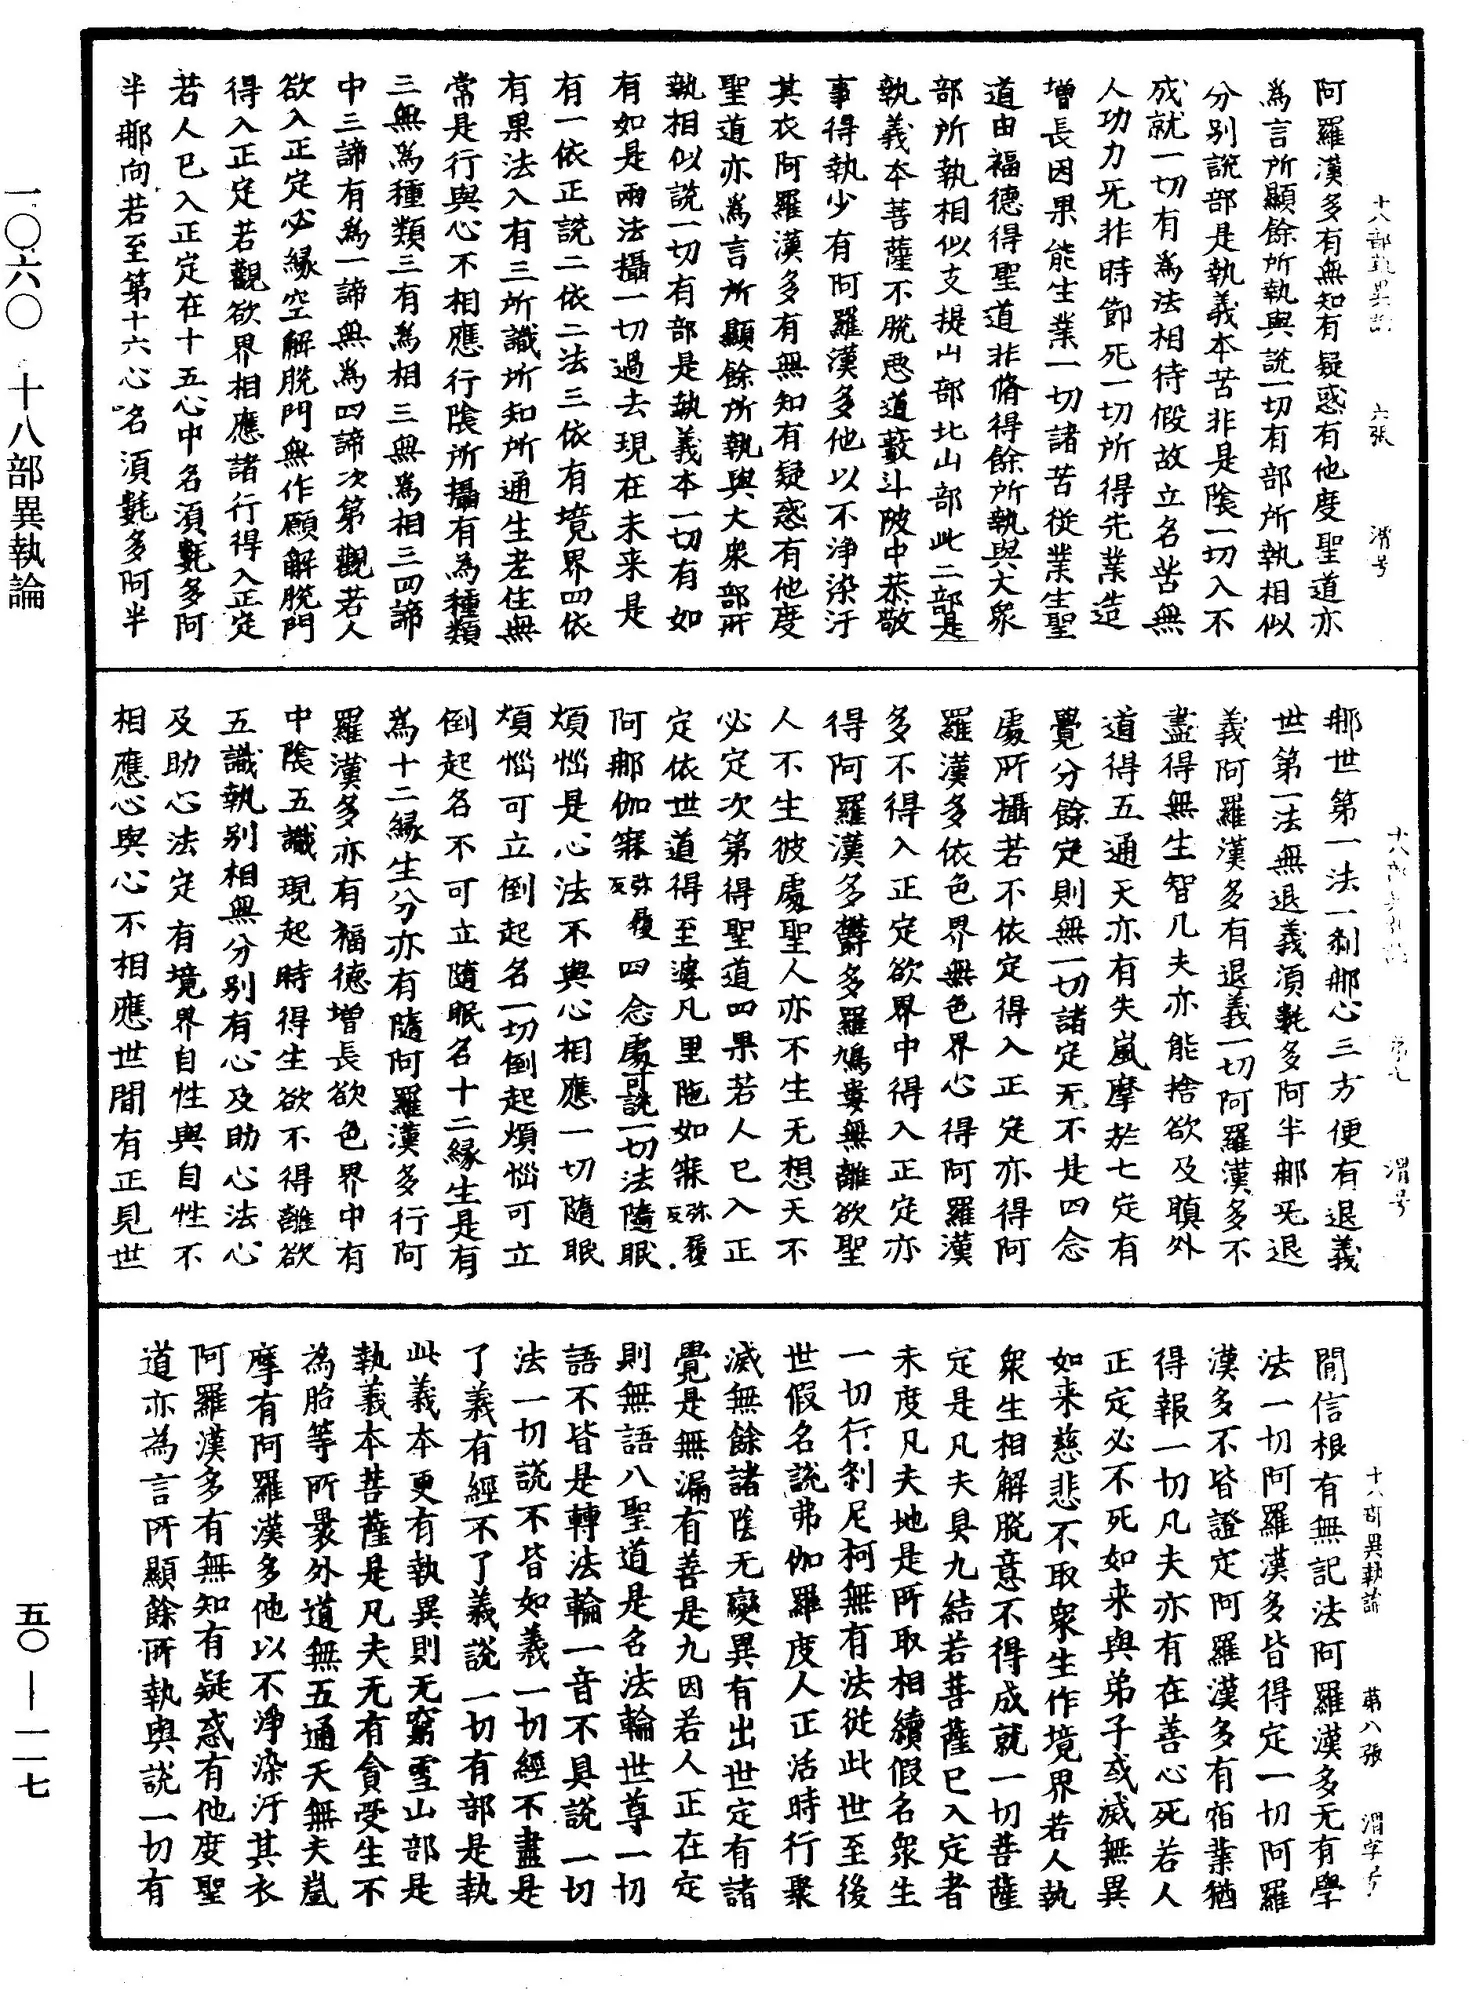 阿羅漢多有無知有疑惑有他度聖道亦
為言所顯餘所執與說一切有部所執相似
分別說部是執義本苦非是陰一切入不
成就一切有為法相待假故立名苦無
人功力无非時節死一切所得先業造
增長因果能生業一切諸苦從業生聖
道由福德得聖道非脩得餘所執與大衆
部所執相似支提山部北山部此二部是
執義本菩薩不脫惡道藪斗陂中恭敬
事得執少有阿羅漢多他以不淨染汙
其衣阿羅漢多有無知有疑惑有他度
聖道亦為言所顯餘所執與大衆部所
執相似說一切有部是執義本一切有如
有如是兩法攝一切過去現在未来是
有一依正說二依二法三依有境界四依
有果法入有三所識所知所通生老住無
常是行與心不相應行陰所攝有為種類
三無為種類三有為相三無為相三四諦
中三諦有為一諦無為四諦次第觀若人
欲入正定必緣空解脫門無作願解脫門
得入正定若觀欲界相應諸行得入正定
若人已入正定在十五心中名湏氀多阿
半那向若至第十六心名湏氀多阿半
那世第一法一剎那心三方便有退義
世第一法無退義湏氀多阿半那无退
義阿羅漢多有退義一切阿羅漢多不
盡得無生智凡夫亦能捨欲及瞋外
道得五通天亦有夫嵐摩於七定有
覺分餘定則無一切諸定无不是四念
處所攝若不依定得入正定亦得阿
羅漢多依色界無色界心得阿羅漢
多不得入正定欲界中得入正定亦
得阿羅漢多欝多羅鳩婁無離欲聖
人不生彼處聖人亦不生无想天不
必定次第得聖道四果若人已入正
定依世道得至婆凡里陁如寐弥履反
阿那伽寐弥履反四念處可說一切法隨眠
煩惱是心法不與心相應一切隨眠
煩惱可立倒起名一切倒起煩惱可立
倒起名不可立隨眠名十二緣生是有
為十二緣生分亦有隨阿羅漢多行阿
羅漢多亦有福德增長欲色界中有
中陰五識現起時得生欲不得離欲
五識執別相無分別有心及助心法心
及助心法定有境界自性與自性不
相應心與心不相應世間有正見世
間信根有無記法阿羅漢多无有學
法一切阿羅漢多皆得定一切阿羅
漢多不皆證定阿羅漢多有宿業猶
得報一切凡夫亦有在善心死若人
正定必不死如来與弟子或滅無異
如来慈悲不取衆生作境界若人執
衆生相解脫意不得成就一切菩薩
定是凡夫具九結若菩薩已入定者
未度凡夫地是所取相續假名衆生
一切行剎尼柯無有法從此世至後
世假名說弗伽羅度人正活時行聚
滅無餘諸陰无變異有出世定有諸
覺是無漏有善是九因若人正在定
則無語八聖道是名法輪世尊一切
語不皆是轉法輪一音不具說一切
法一切說不皆如義一切經不盡是
了義有經不了義說一切有部是執
此義本更有執異則无窮雪山部是
執義本菩薩是凡夫无有貪受生不
為胎等所裹外道無五通天無夫嵐
摩有阿羅漢多他以不淨染汙其衣
阿羅漢多有無知有疑惑有他度聖
道亦為言所顯餘所執與說一切有
一〇六〇 十八部異執論
五〇—一一七
十八部異執論 六張 渭号
第七 渭号
十八部異執論 第八張 渭字号